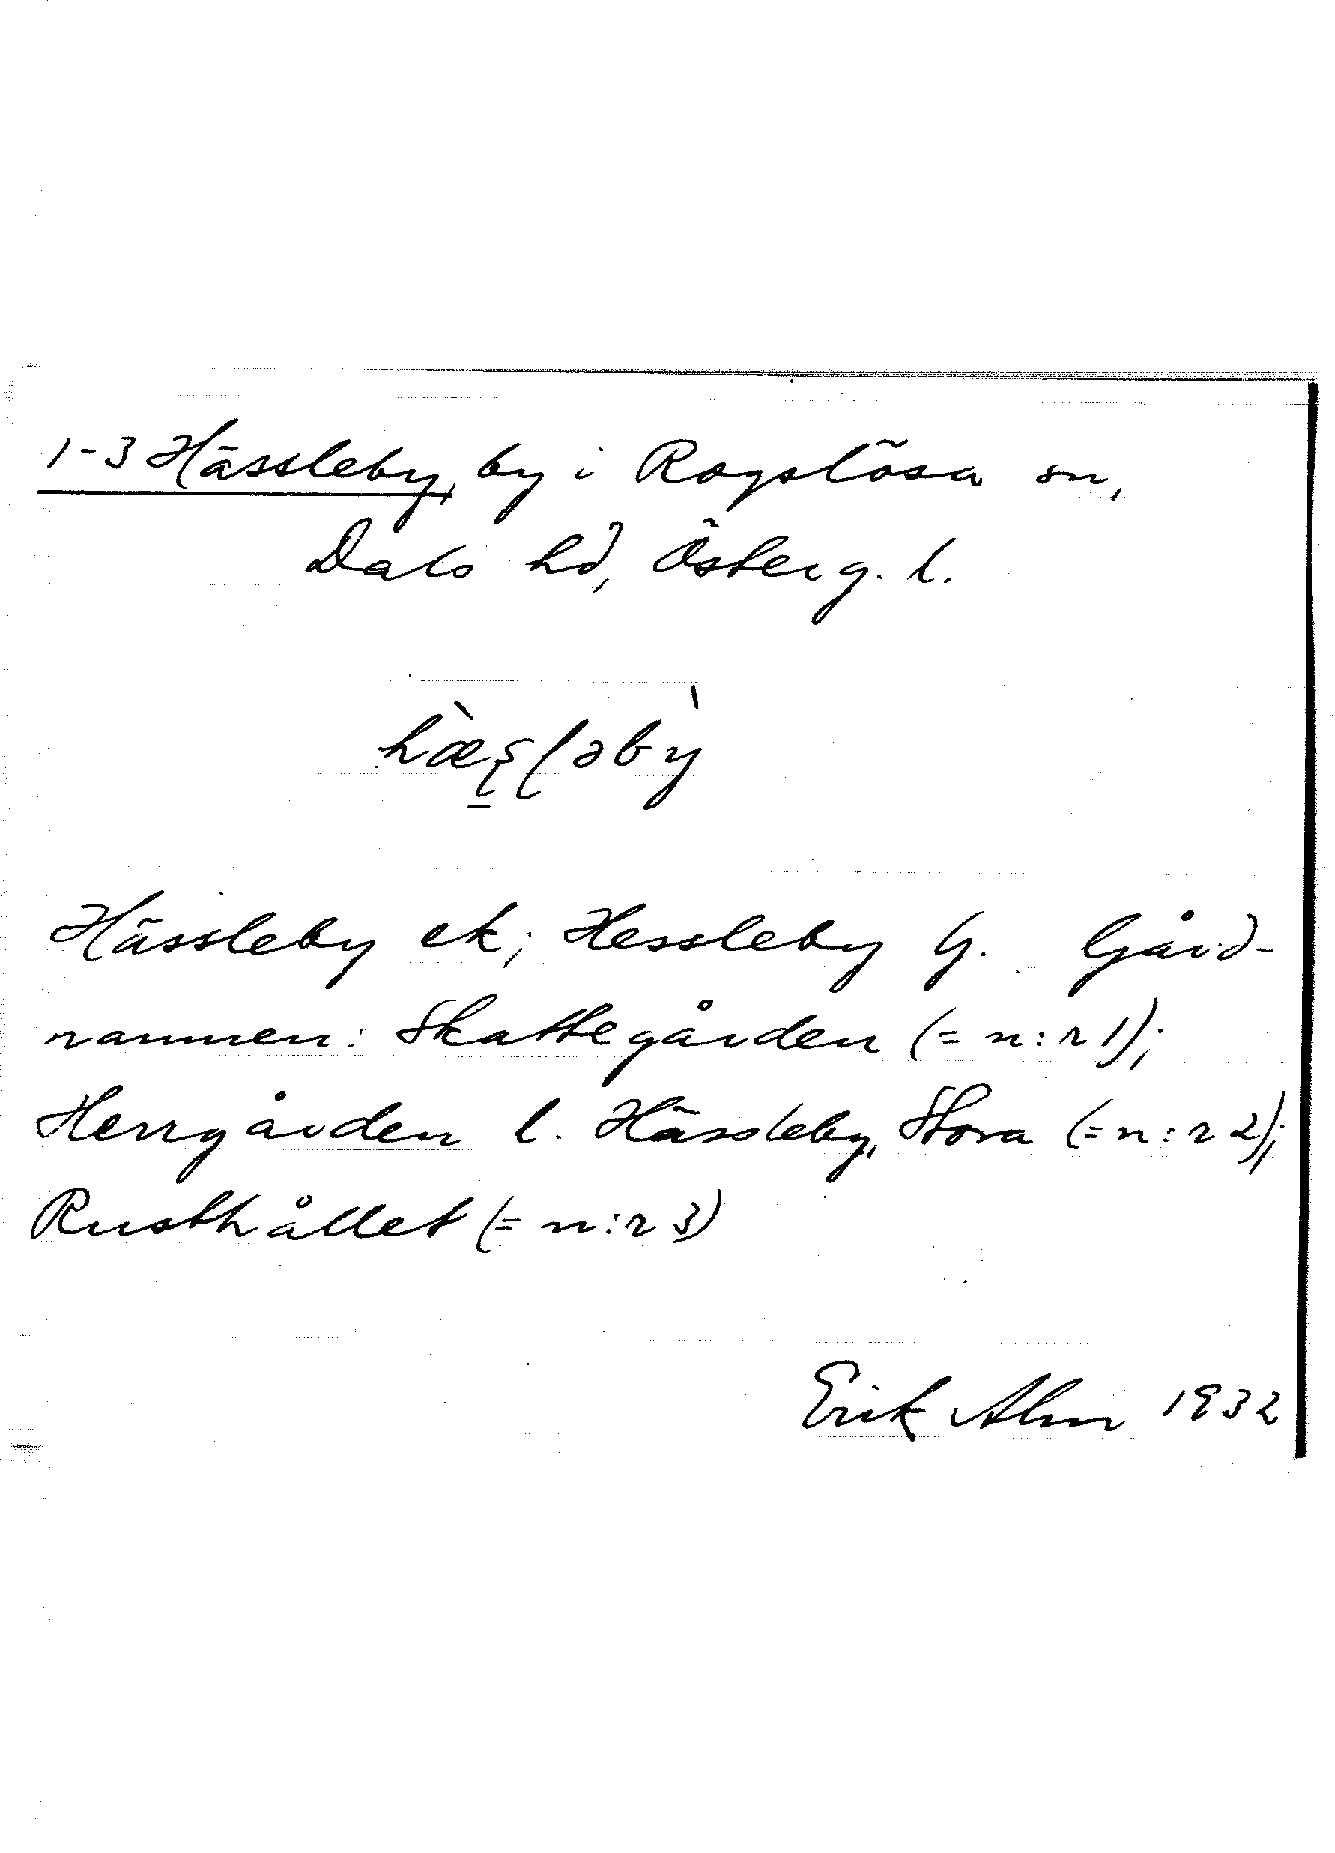 1-3 Hässleby, by i Rogslösa sn,
Dals hd, Österg. l.
hæ̀s̨ləbỳ
Hässleby ek; Hessleby G. Gård-
namnen: Skattegården (= n:r 1);
Herrgården l. Hässleby, Stora (= n:r 2);
Rusthållet (= n:r 3)
Erik Alm 1932